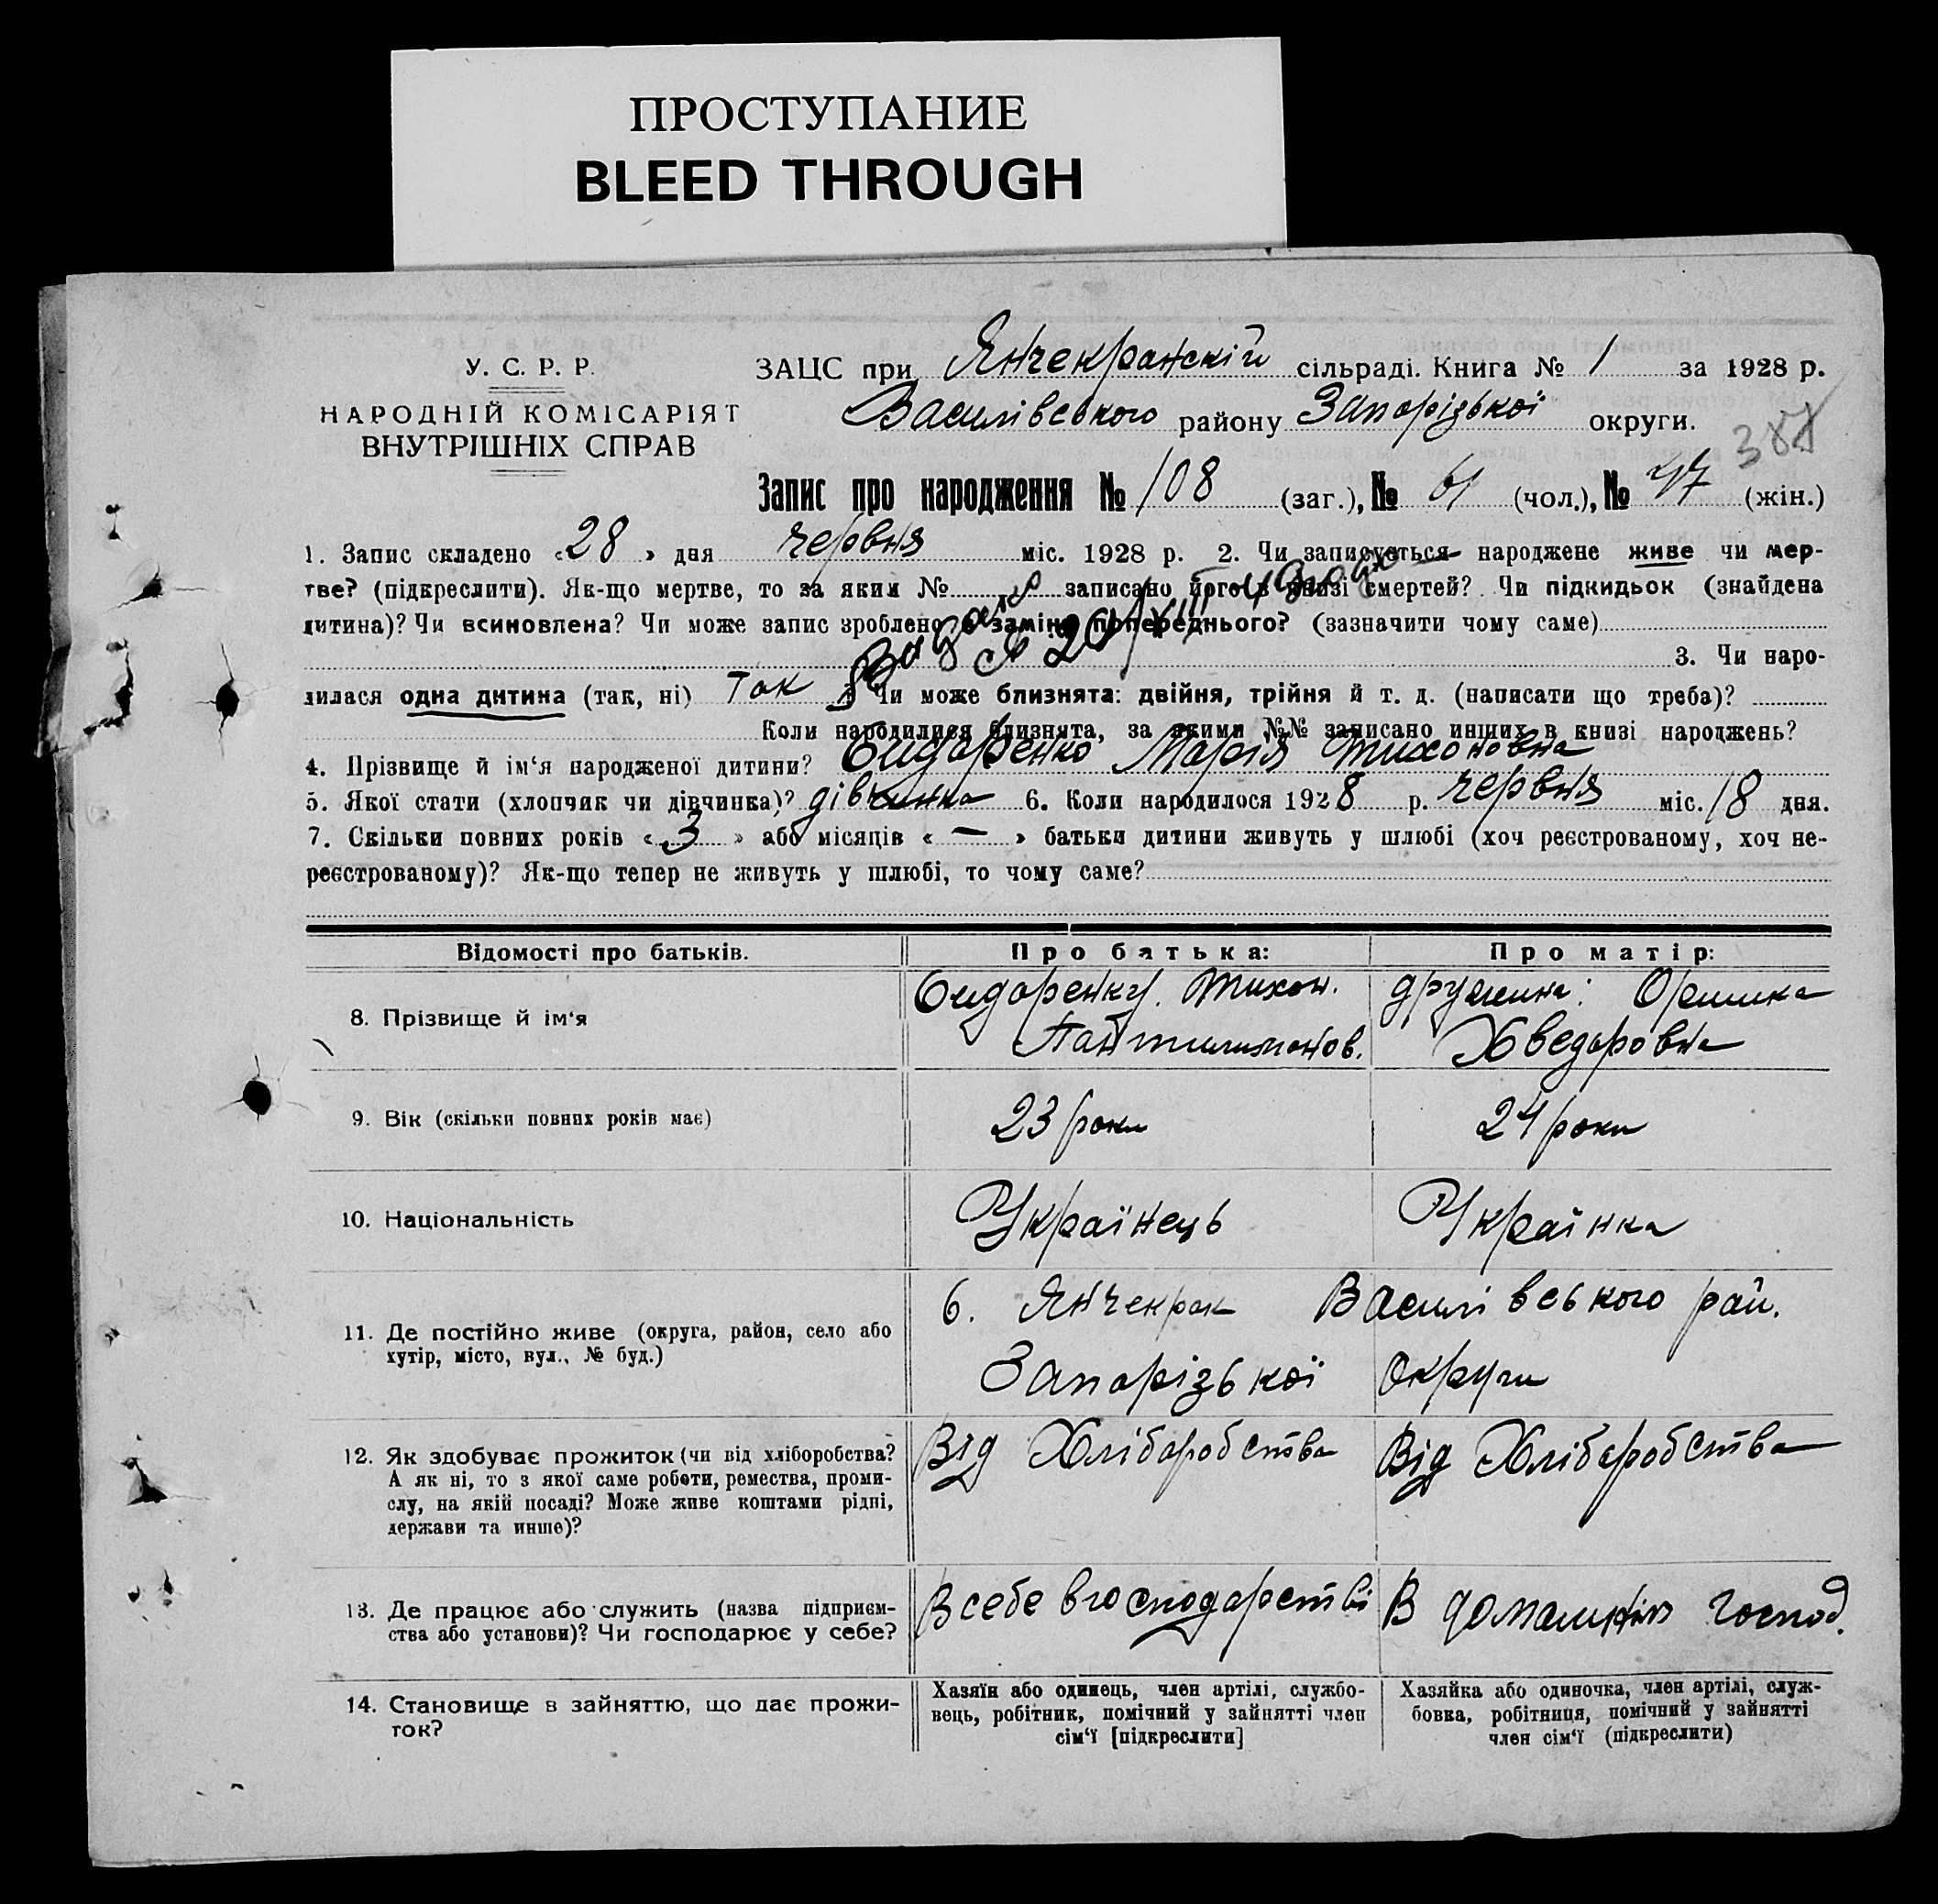 ПРОСТУПАНИЕ
BLEED THROUGH
У. С. Р. Р.
НАРОДНІЙ КОМІСАРІЯТ
ВНУТРІШНІХ СПРАВ
ЗАЦС при Янчекранскій сільраді. Книга № 1 за 1928 р.
Василівського району Запорізької округи.
Запис про народження № 108 (заг.), № 61 (чол.), № 47 (жін.)
1. Запис складено «28» дня червня міс. 1928 р. 2. Чи записується народжене живе чи мер-
тве? (підкреслити). Як-що мертве, то за яким № записано його в книзі смертей? Чи підкидьок (знайдена
дитина)? Чи всиновлена? Чи може запис зроблено в заміну попереднього? (зазначити чому саме)
3. Чи наро-
дилася одна дитина (так, ні) Так Чи може близнята: двійня, трійня й т. д. (написати що треба)?
Коли народилися близнята, за якими №№ записано инших в книзі народжень?
4. Прізвище й ім‘я народженої дитини? Сидоренко Марія Тихоновна
5. Якої стати (хлопчик чи дівчинка)? дівчинка 6. Коли народилося 1928 р. червня міс. 18 дня.
7. Скільки повних років «3» або місяців «—» батьки дитини живуть у шлюбі (хоч реєстрованому, хоч не-
реєстрованому)? Як-що тепер не живуть у шлюбі, то чому саме?
Відомості про батьків. Про батька: Про матір:
8. Прізвище й ім‘я
Сидоренку. Тихон.
Пантилимонов.
дружина: Оришка
Хведоровна
9. Вік (скільки повних років має) 23 роки 24 роки
10. Національність Українець Українка
11. Де постійно живе (округа, район, село або
хутір, місто, вул., № буд.)
с. Янчекрак Василівського рай.
Запорізької округи
12. Як здобуває прожиток (чи від хліборобства?
А як ні, то з якої саме роботи, ремества, проми-
слу, на якій посаді? Може живе коштами рідні,
держави та инше)?
Від Хліборобства
Від Хліборобства
13. Де працює або служить (назва підприєм-
ства або установи)? Чи господарює у себе?
В себе в господарстві
В домашнім господ.
14. Становище в зайняттю, що дає прожи-
ток?
Хазяїн або одинець, член артілі, службо-
вець, робітник, помічний у зайнятті член
сім‘ї [підкреслити]
Хазяйка або одиночка, член артілі, служ-
бовка, робітниця, помічний у зайнятті
член сім‘ї (підкреслити)